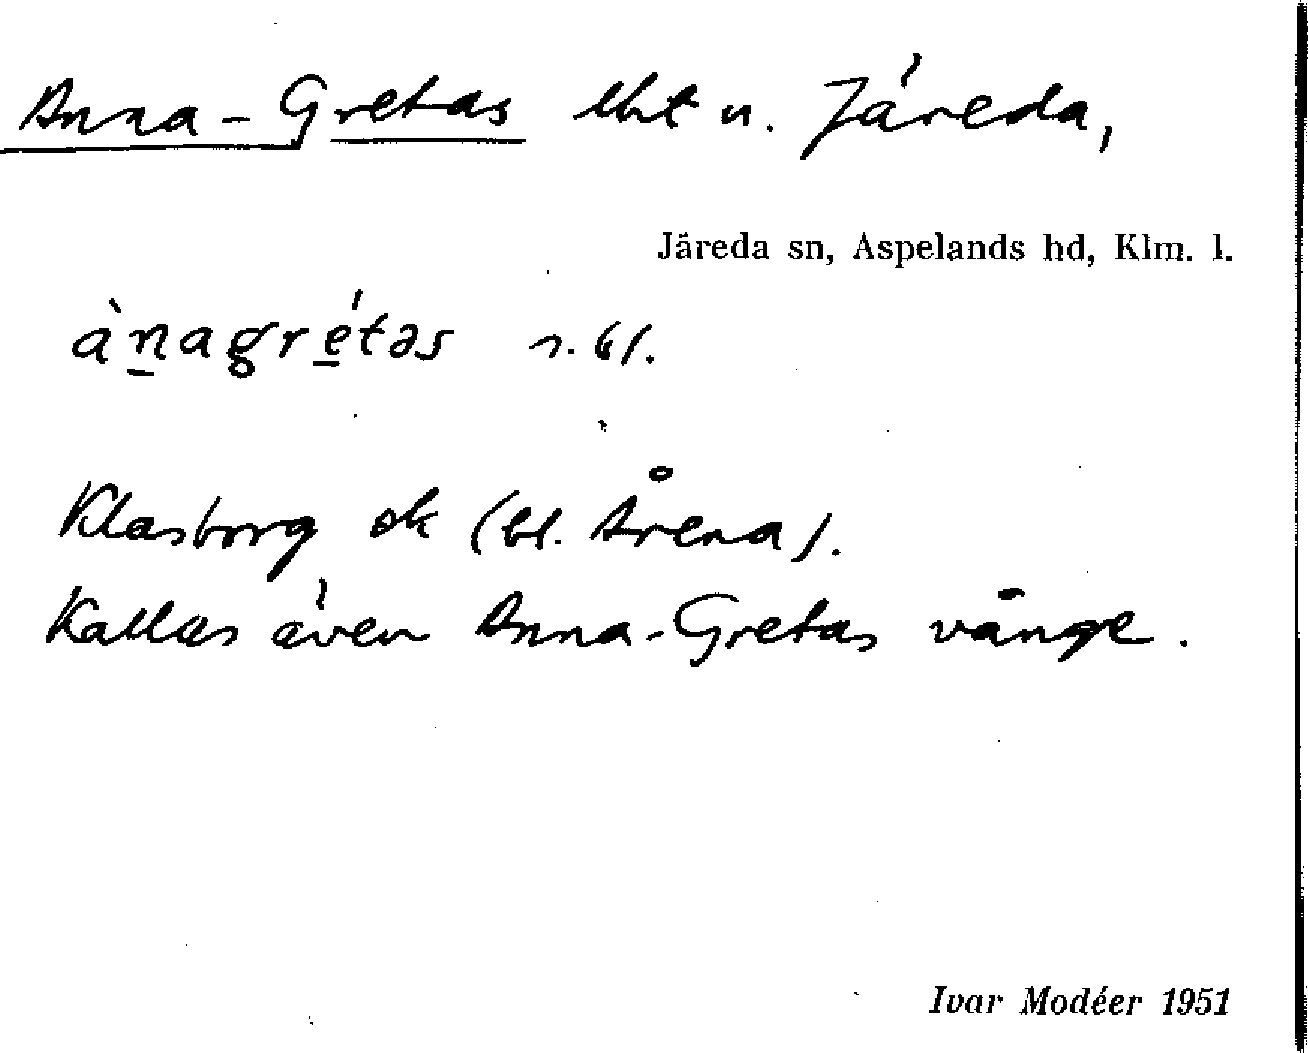 Anna-Gretas lht u. Järeda,
Järeda sn, Aspelands hd, Klm. l.
ànagrétəs
Klasborg ek (bl. Årena).
Kallas även Anna-Gretas vänge.
Ivar Modéer 1951